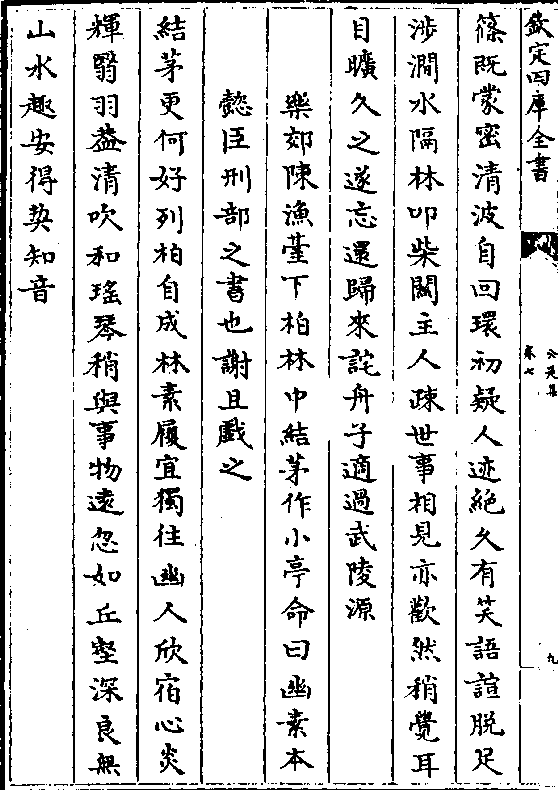 欽定四庫全書
公是集
卷七
九
篠既蒙密清波自回環初疑人迹絶久有笑語諠脱足
涉澗水隔林叩柴闗主人踈世事相見亦歡然稍覺耳
目曠久之遂忘還歸來詫舟子適過武陵源
樂郊陳漁臺下柏林中結茅作小亭命曰幽素本
懿臣刑部之書也謝且戲之
結茅更何好列柏自成林素履宜獨往幽人欣宿心炎
輝翳羽葢清吹和瑤琴稍與事物逺忽如丘壑深良無
山水趣安得契知音